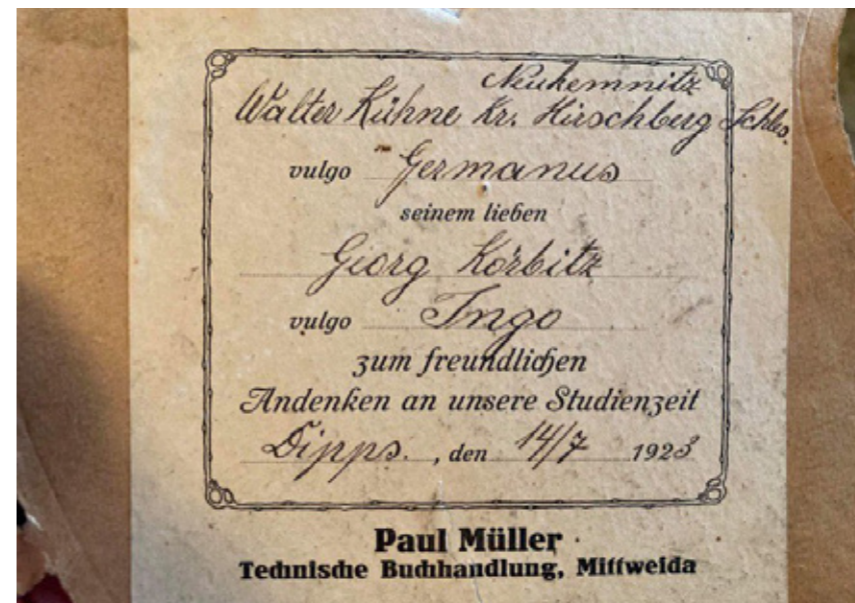 Neukemnitz
Walter Kühne Kr. Hirschberg Schles.
vulgo Germanus
seinem lieben
Georg Körbitz
vulgo Ingo
zum freundlichen
Andenken an unsere Studienzeit
Dipps., den 14/7 1923
Paul Müller
Technische Buchhandlung, Mittweida